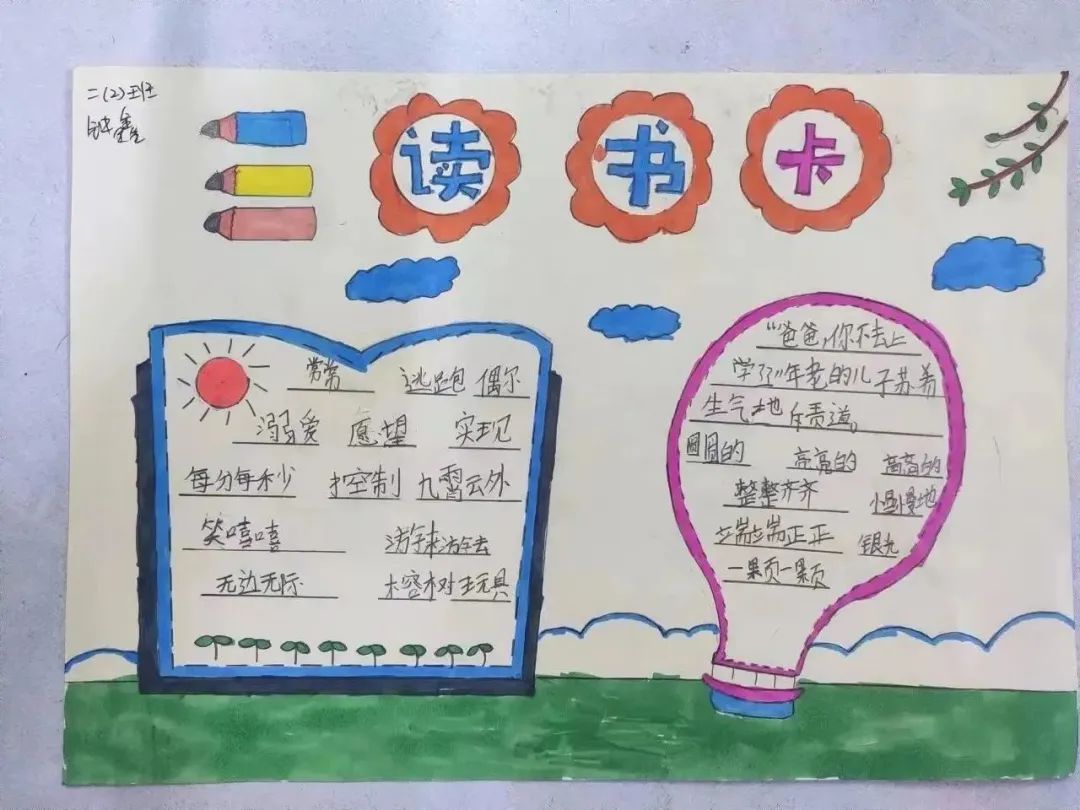 二(2)班
钟鑫
读书卡
常常 逃跑 偶尔
溺爱 愿望 实现
每分每秒 控制 九霄云外
笑嘻嘻 游来游去
无边无际 榕树 玩具
“爸爸,你不去上
学了”年老的儿子苏养
生气地斥责道。
圆圆的 亮亮的 高高的
整整齐齐 慢慢地
端端正正 银光
一颗一颗